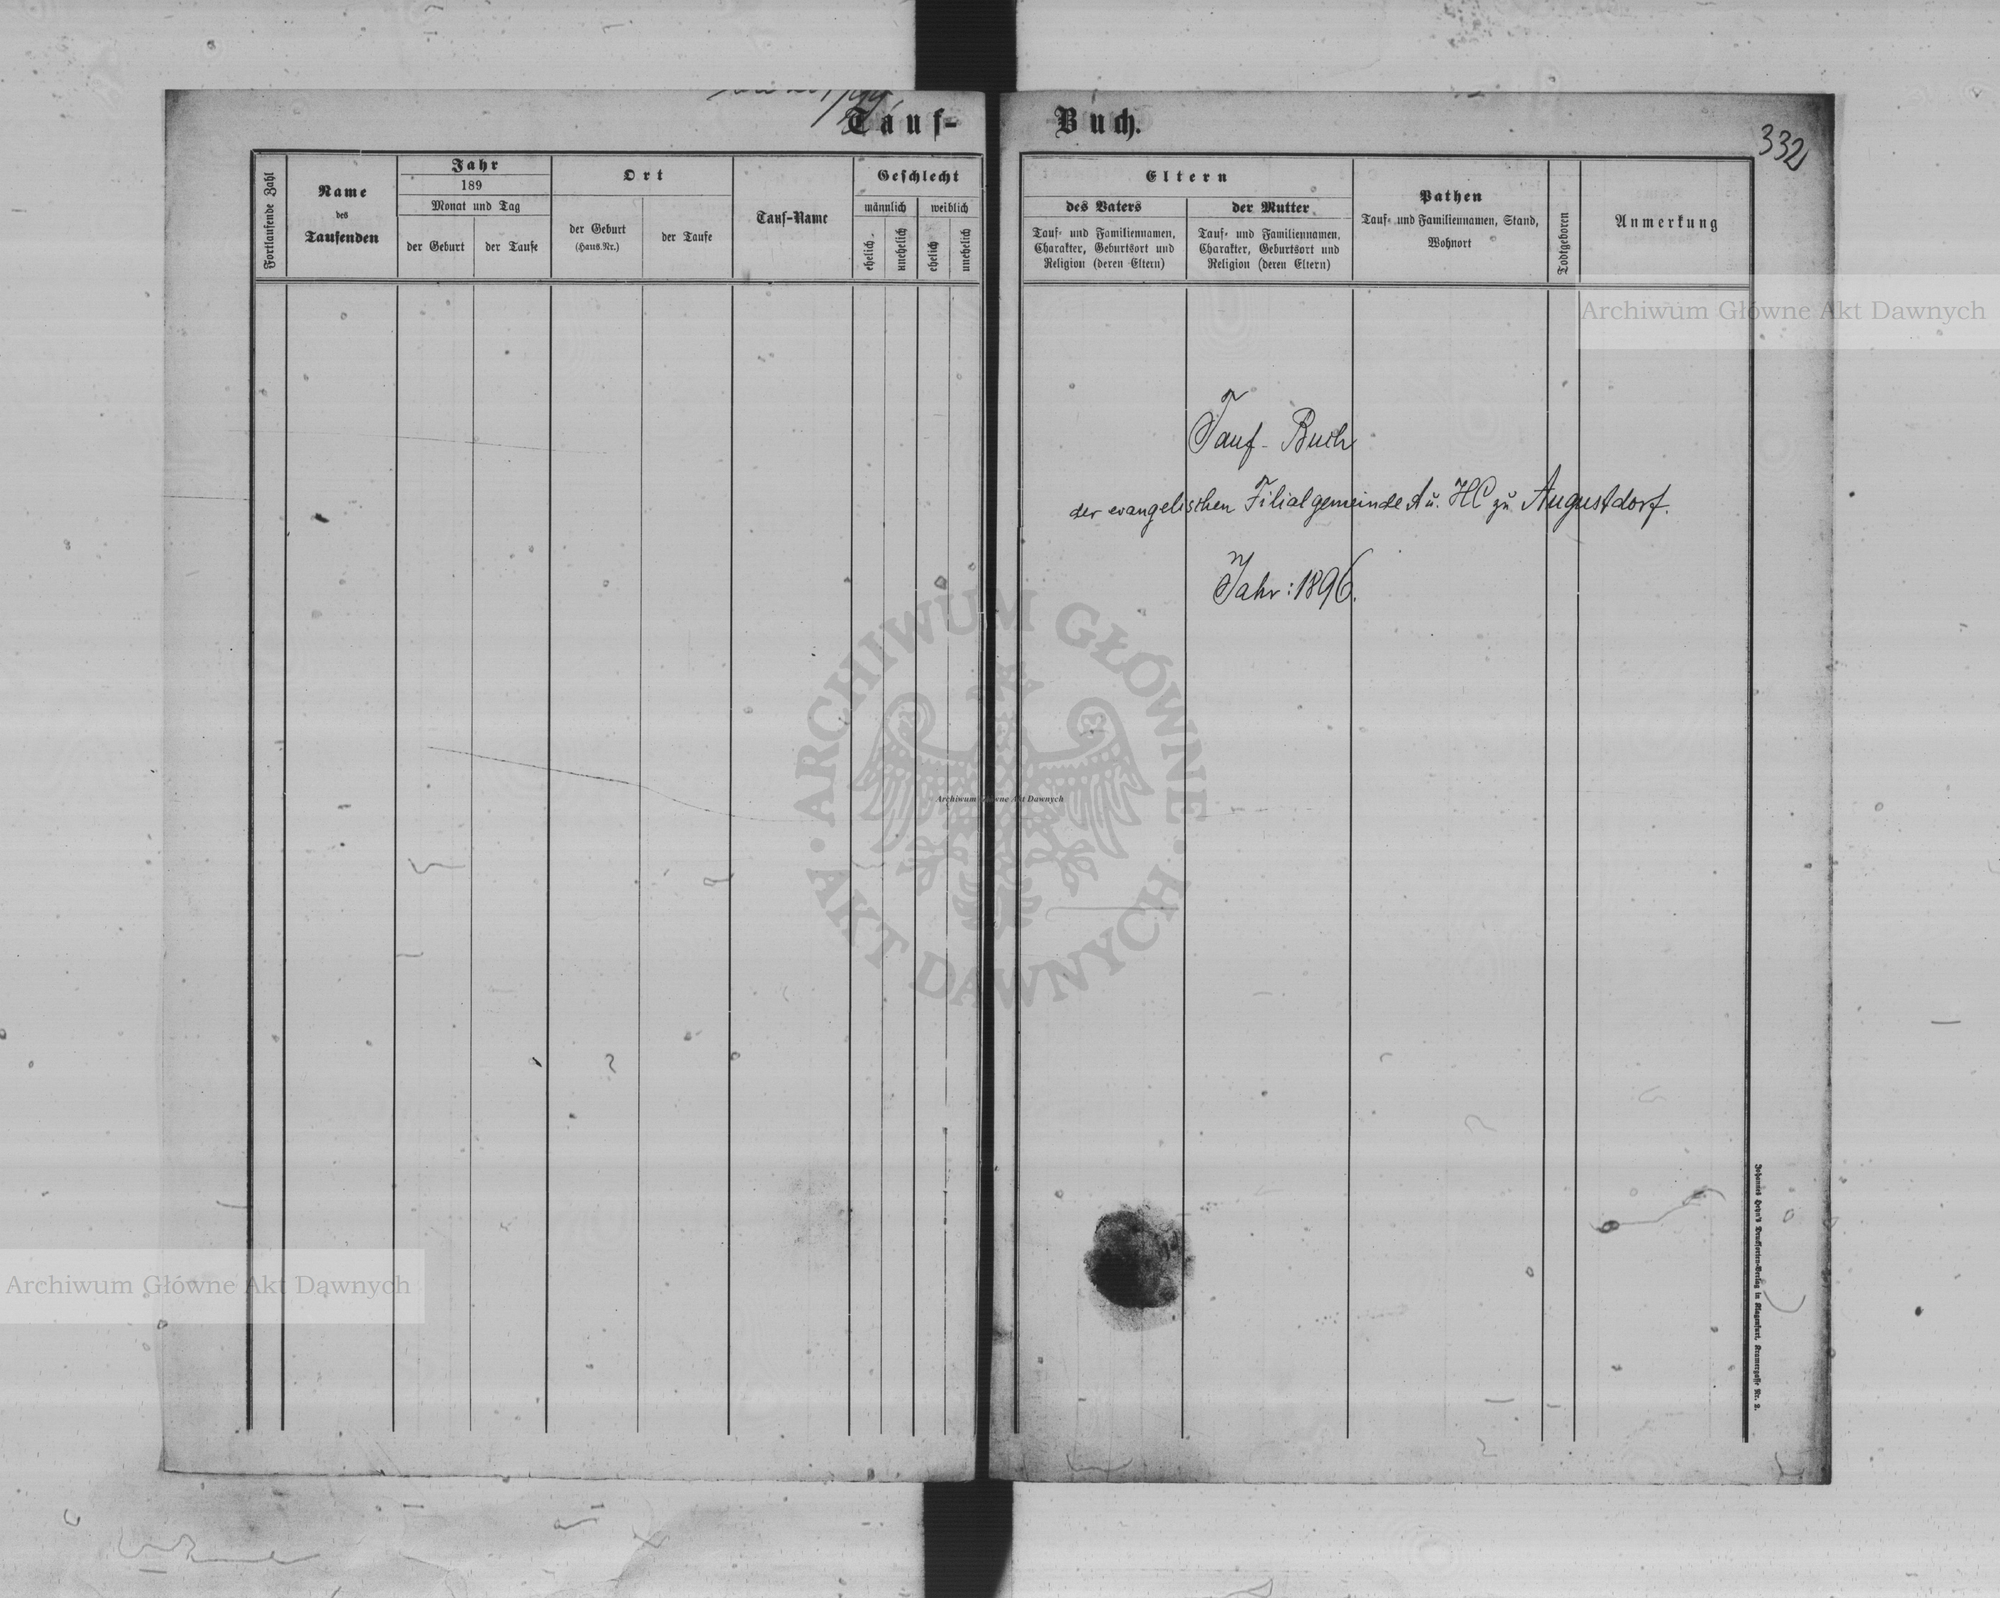 Tauf-
Buch.
332
Fortlaufende Zahl
Name
des
Taufenden
Jahr
189
Monat und Tag
der Geburt
der Taufe
Ort
der Geburt
(Haus-Nr.)
der Taufe
Tauf-Name
Geschlecht
männlich
weiblich
ehelich
unehelich
ehelich
unehelich
Eltern
des Vaters
Tauf- und Familiennamen,
Charakter, Geburtsort und
Religion (deren Eltern)
der Mutter
Tauf- und Familiennamen,
Charakter, Geburtsort und
Religion (deren Eltern)
Pathen
Tauf- und Familiennamen, Stand,
Wohnort
Todtgeboren
Anmerkung
Archiwum Główne Akt Dawnych
Tauf-Buch
der evangelischen Filialgemeinde A u. HC zu Augustdorf.
Jahr: 1896.
ARCHIWUM GŁÓWNE
AKT DAWNYCH
Archiwum Główne Akt Dawnych
Johannes Heyn's Drucksorten-Verlag in Klagenfurt, Kramergasse Nr. 2.
Archiwum Główne Akt Dawnych